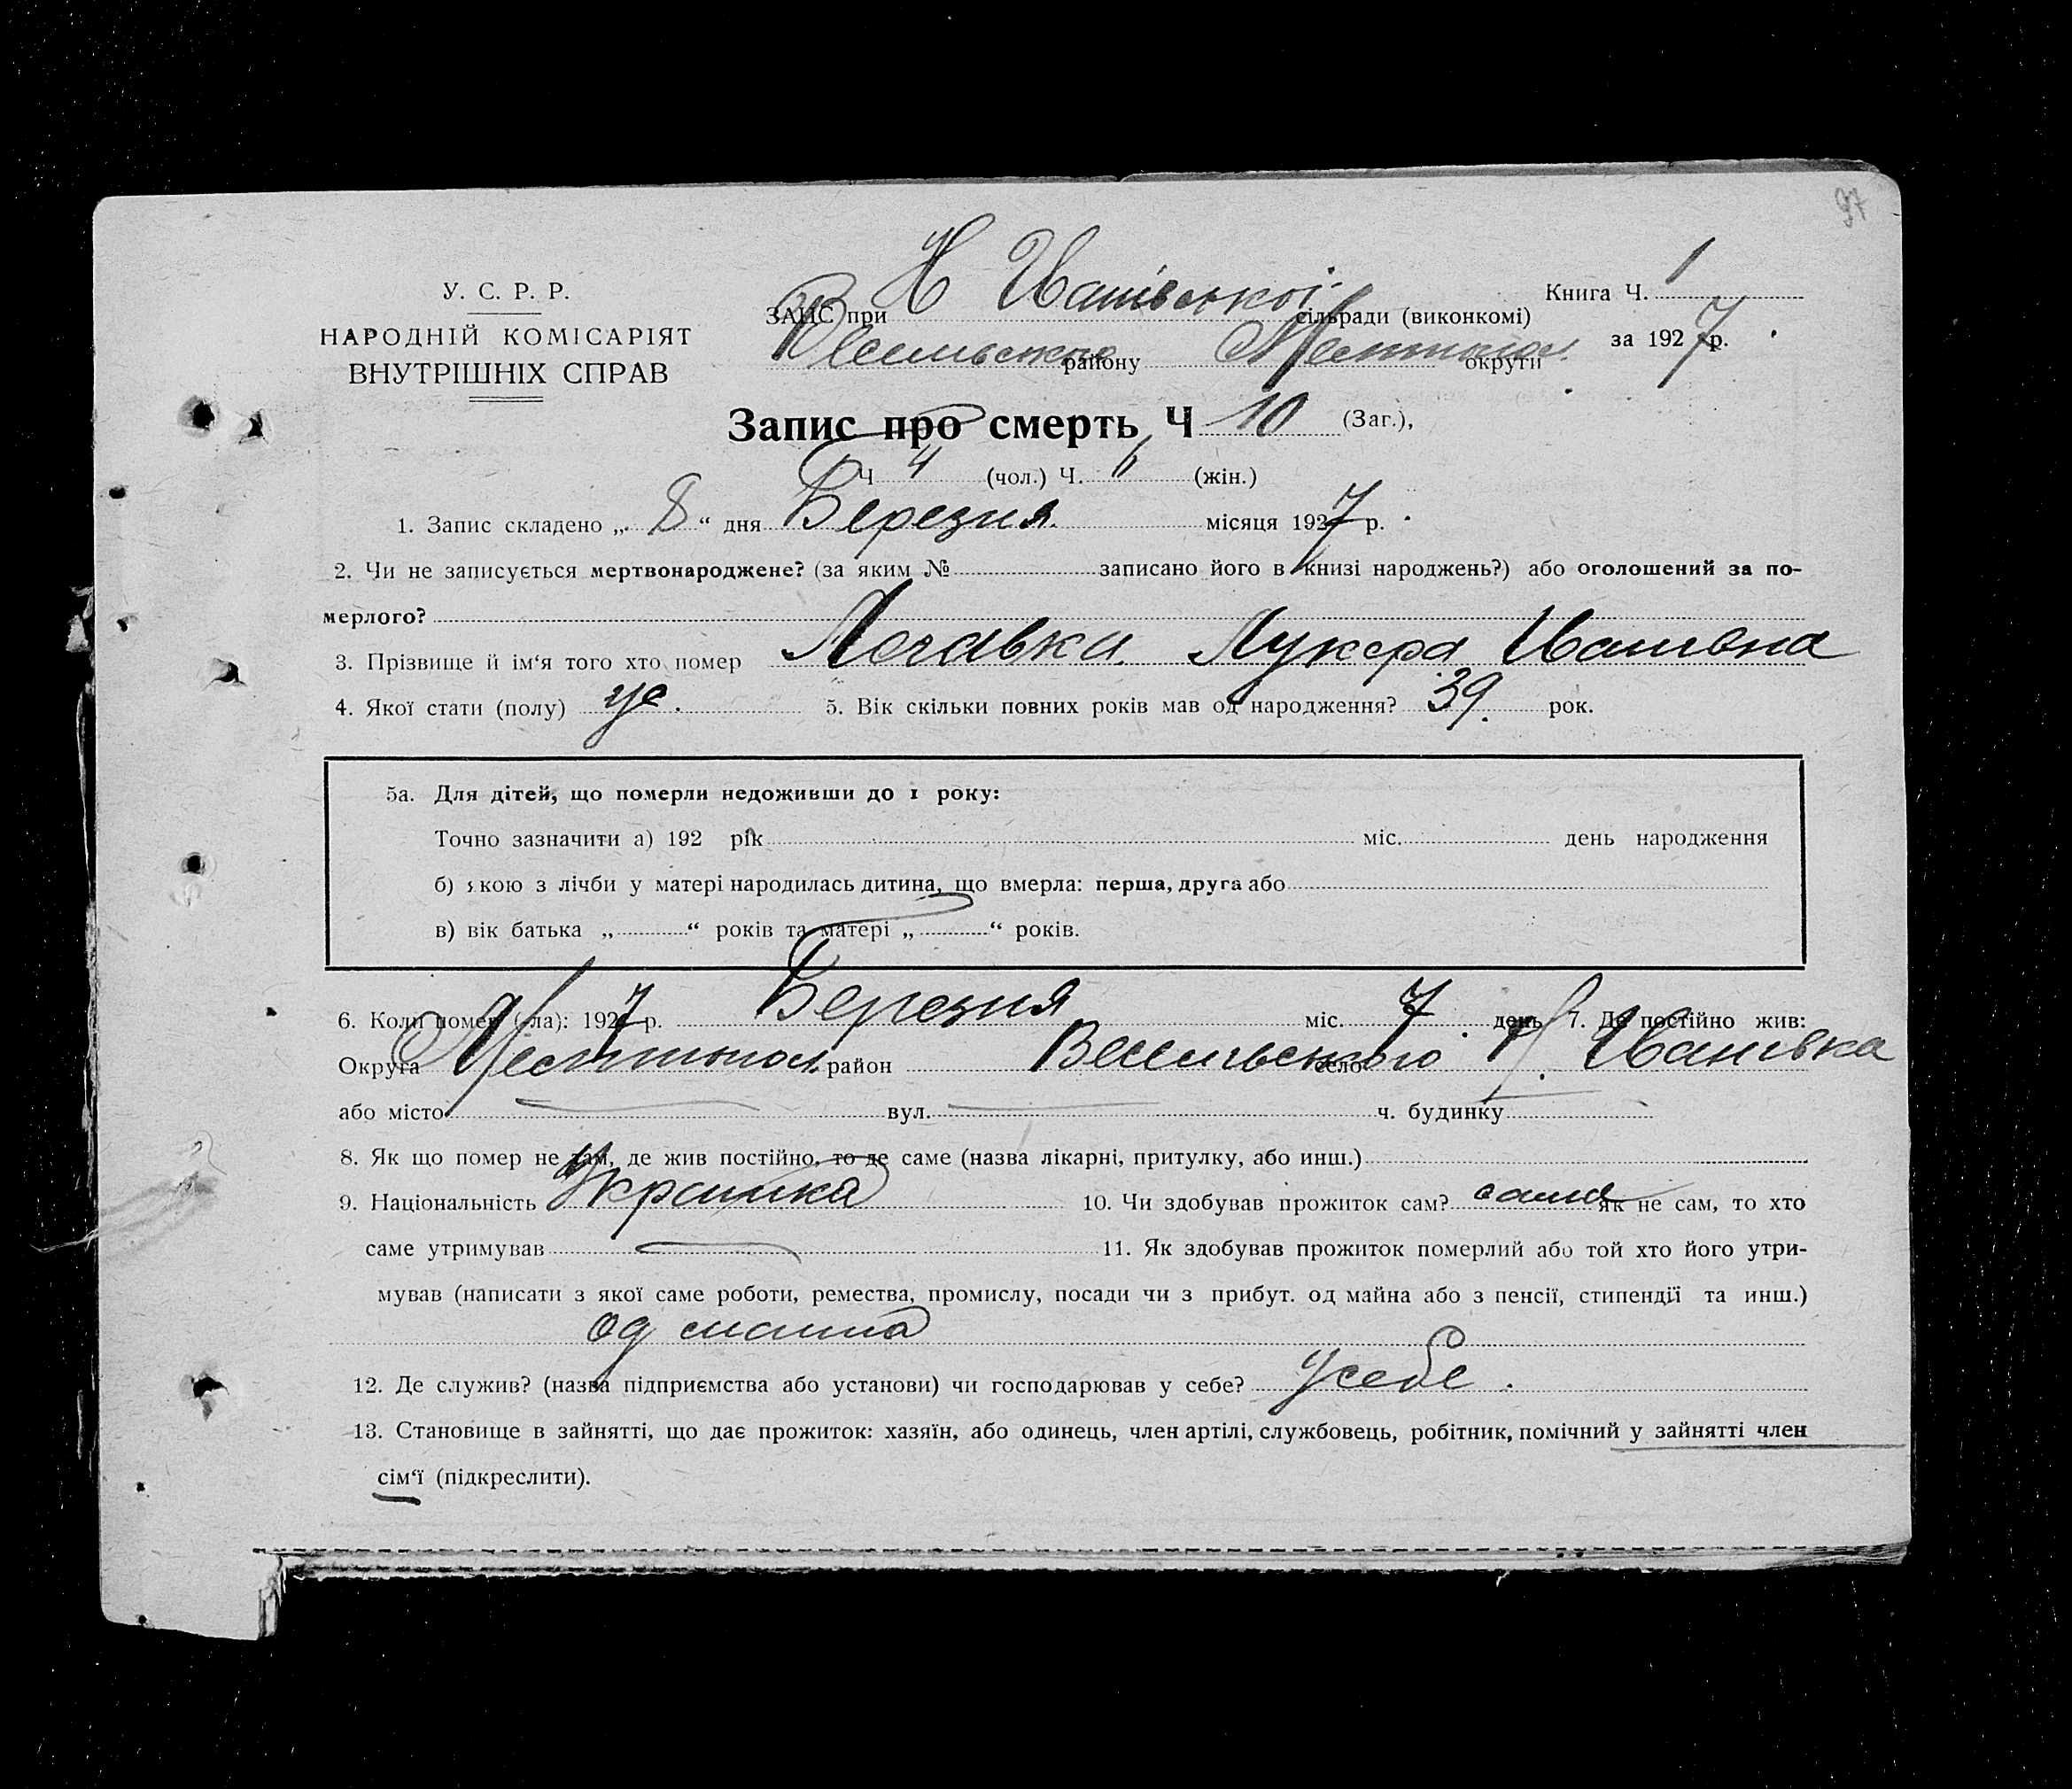 97
У. С. Р. Р.
НАРОДНІЙ КОМІСАРІЯТ
ВНУТРІШНІХ СПРАВ
ЗАГС при Н Іванівської сільради (виконкомі)
Весельського району Мелитопол. округи
Книга Ч. 1
за 1927 р.
Запис про смерть Ч 10 (Заг.),
Ч 4 (чол.) Ч. 6 (жін.)
1. Запис складено „ 8 “ дня Березня місяця 1927 р.
2. Чи не записується мертвонароджене? (за яким № записано його в книзі народжень?) або оголошений за по-
мерлого?
3. Прізвище й ім‘я того хто помер Лукера Іванівна
4. Якої стати (полу) 5. Вік скільки повних років мав од народження? 39. рок.
5а. Для дітей, що померли недоживши до 1 року:
Точно зазначити а) 192 рік міс. день народження
б) якою з лічби у матері народилась дитина, що вмерла: перша, друга або
в) вік батька „ “ років та матері „ “ років.
6. Коли помер (-ла): 1927 р. Березня міс. 7 день 7. Де постійно жив:
Округа Мелитопол. район Весельського село Н. Іванівка
або місто вул. ч. будинку
8. Як що помер не там, де жив постійно, то де саме (назва лікарні, притулку, або инш.)
9. Національність Украинка 10. Чи здобував прожиток сам? сама як не сам, то хто
саме утримував 11. Як здобував прожиток померлий або той хто його утри-
мував (написати з якої саме роботи, ремества, промислу, посади чи з прибут. од майна або з пенсії, стипендії та инш.)
од маина
12. Де служив? (назва підприємства або установи) чи господарював у себе? У себе.
13. Становище в зайнятті, що дає прожиток: хазяїн, або одинець, член артілі, службовець, робітник, помічний у зайнятті член
сім‘ї (підкреслити).